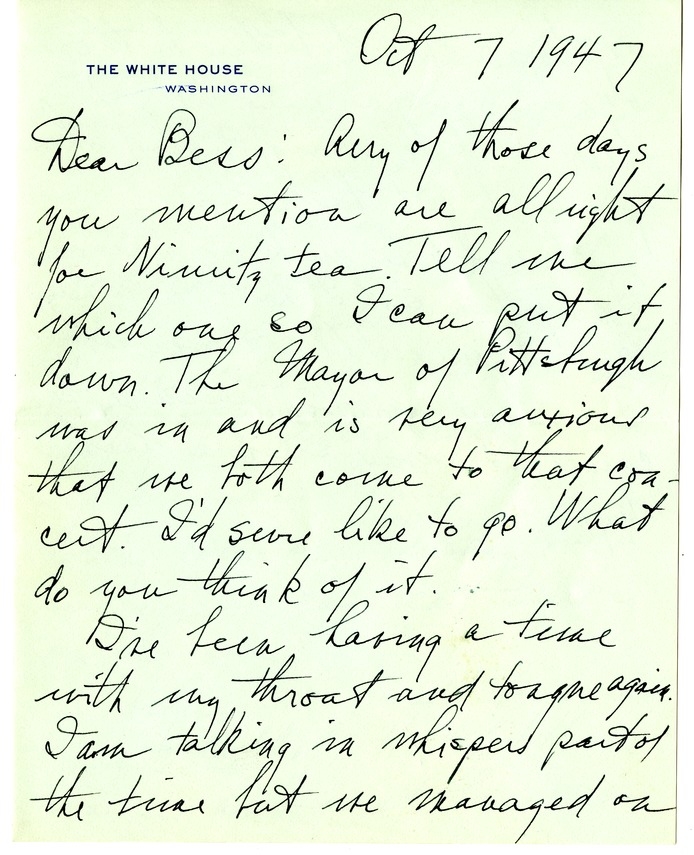 Oct 7 1947
THE WHITE HOUSE
WASHINGTON
Dear Bess: Any of those days
you mention are all right
for Nimitz tea. Tell me
which one so I can put it
down. The Mayor of Pittsburgh
was in and is very anxious
that we both come to that con-
cert. I'd sure like to go. What
do you think of it.
I've been having a time
with my throat and tongue again.
I am talking in whispers part of
the time but we managed on